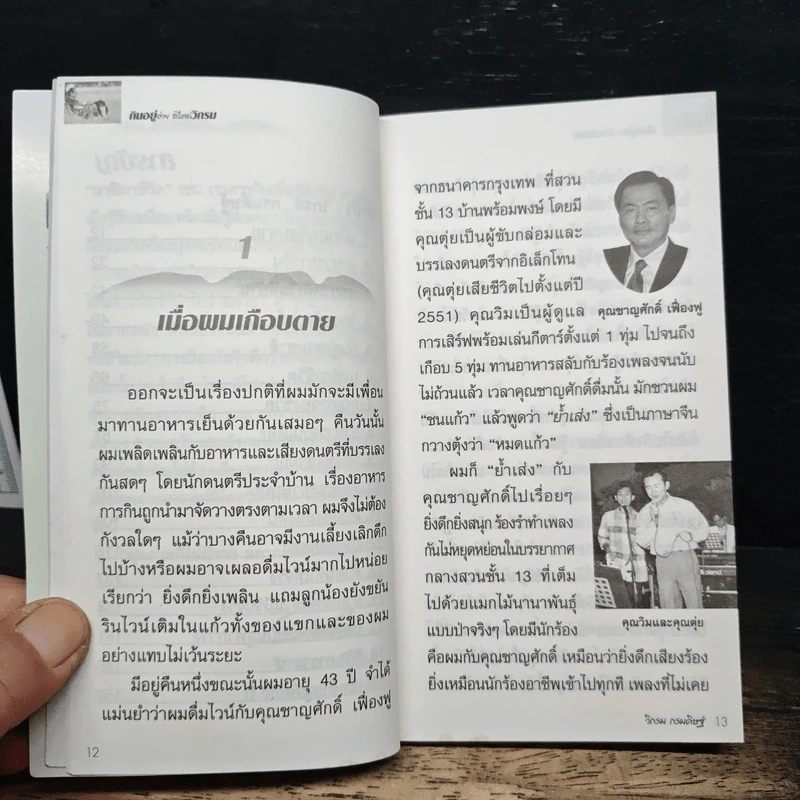 กินอยู่อย่าง วิกรม
1
เมื่อผมเกือบตาย
ออกจะเป็นเรื่องปกติที่ผมมักจะมีเพื่อน
มาทานอาหารเย็นด้วยกันเสมอๆ คืนวันนั้น
ผมเพลิดเพลินกับอาหารและเสียงดนตรีที่บรรเลง
กันสดๆ โดยนักดนตรีประจำบ้าน เรื่องอาหาร
การกินถูกนำมาจัดวางตรงตามเวลา ผมจึงไม่ต้อง
กังวลใดๆ แม้ว่าบางคืนอาจมีงานเลี้ยงเลิกดึก
ไปบ้างหรือผมอาจเผลอดื่มไวน์มากไปหน่อย
เรียกว่า ยิ่งดึกยิ่งเพลิน แถมลูกน้องยังขยัน
รินไวน์เติมในแก้วทั้งของแขกและของผม
อย่างแทบไม่เว้นระยะ
มีอยู่คืนหนึ่งขณะนั้นผมอายุ 43 ปี จำได้
แม่นยำว่าผมดื่มไวน์กับคุณชาญศักดิ์ เฟื่องฟู
12
จากธนาคารกรุงเทพ ที่สวน
ชั้น 13 บ้านพร้อมพงษ์ โดยมี
คุณตุ่ยเป็นผู้ขับกล่อมและ
บรรเลงดนตรีจากอิเล็กโทน
(คุณตุ่ยเสียชีวิตไปตั้งแต่ปี
2551) คุณวิมเป็นผู้ดูแล
คุณชาญศักดิ์ เฟื่องฟู
การเสิร์ฟพร้อมเล่นกีตาร์ตั้งแต่ 1 ทุ่ม ไปจนถึง
เกือบ 5 ทุ่ม ทานอาหารสลับกับร้องเพลงจนนับ
ไม่ถ้วนแล้ว เวลาคุณชาญศักดิ์ดื่มนั้น มักชวนผม
“ชนแก้ว” แล้วพูดว่า “ย้ำเส่ง” ซึ่งเป็นภาษาจีน
กวางตุ้งว่า “หมดแก้ว”
ผมก็ “ย้ำเส่ง” กับ
คุณชาญศักดิ์ไปเรื่อยๆ
ยิ่งดึกยิ่งสนุก ร้องรำทำเพลง
กันไม่หยุดหย่อนในบรรยากาศ
กลางสวนชั้น 13 ที่เต็ม
ไปด้วยแมกไม้นานาพันธุ์
แบบป่าจริงๆ โดยมีนักร้อง
Roland
คุณวิมและคุณตุ่ย
คือผมกับคุณชาญศักดิ์ เหมือนว่ายิ่งดึกเสียงร้อง
ยิ่งเหมือนนักร้องอาชีพเข้าไปทุกที เพลงที่ไม่เคย
วิกรม กรมดิษฐ์ 13